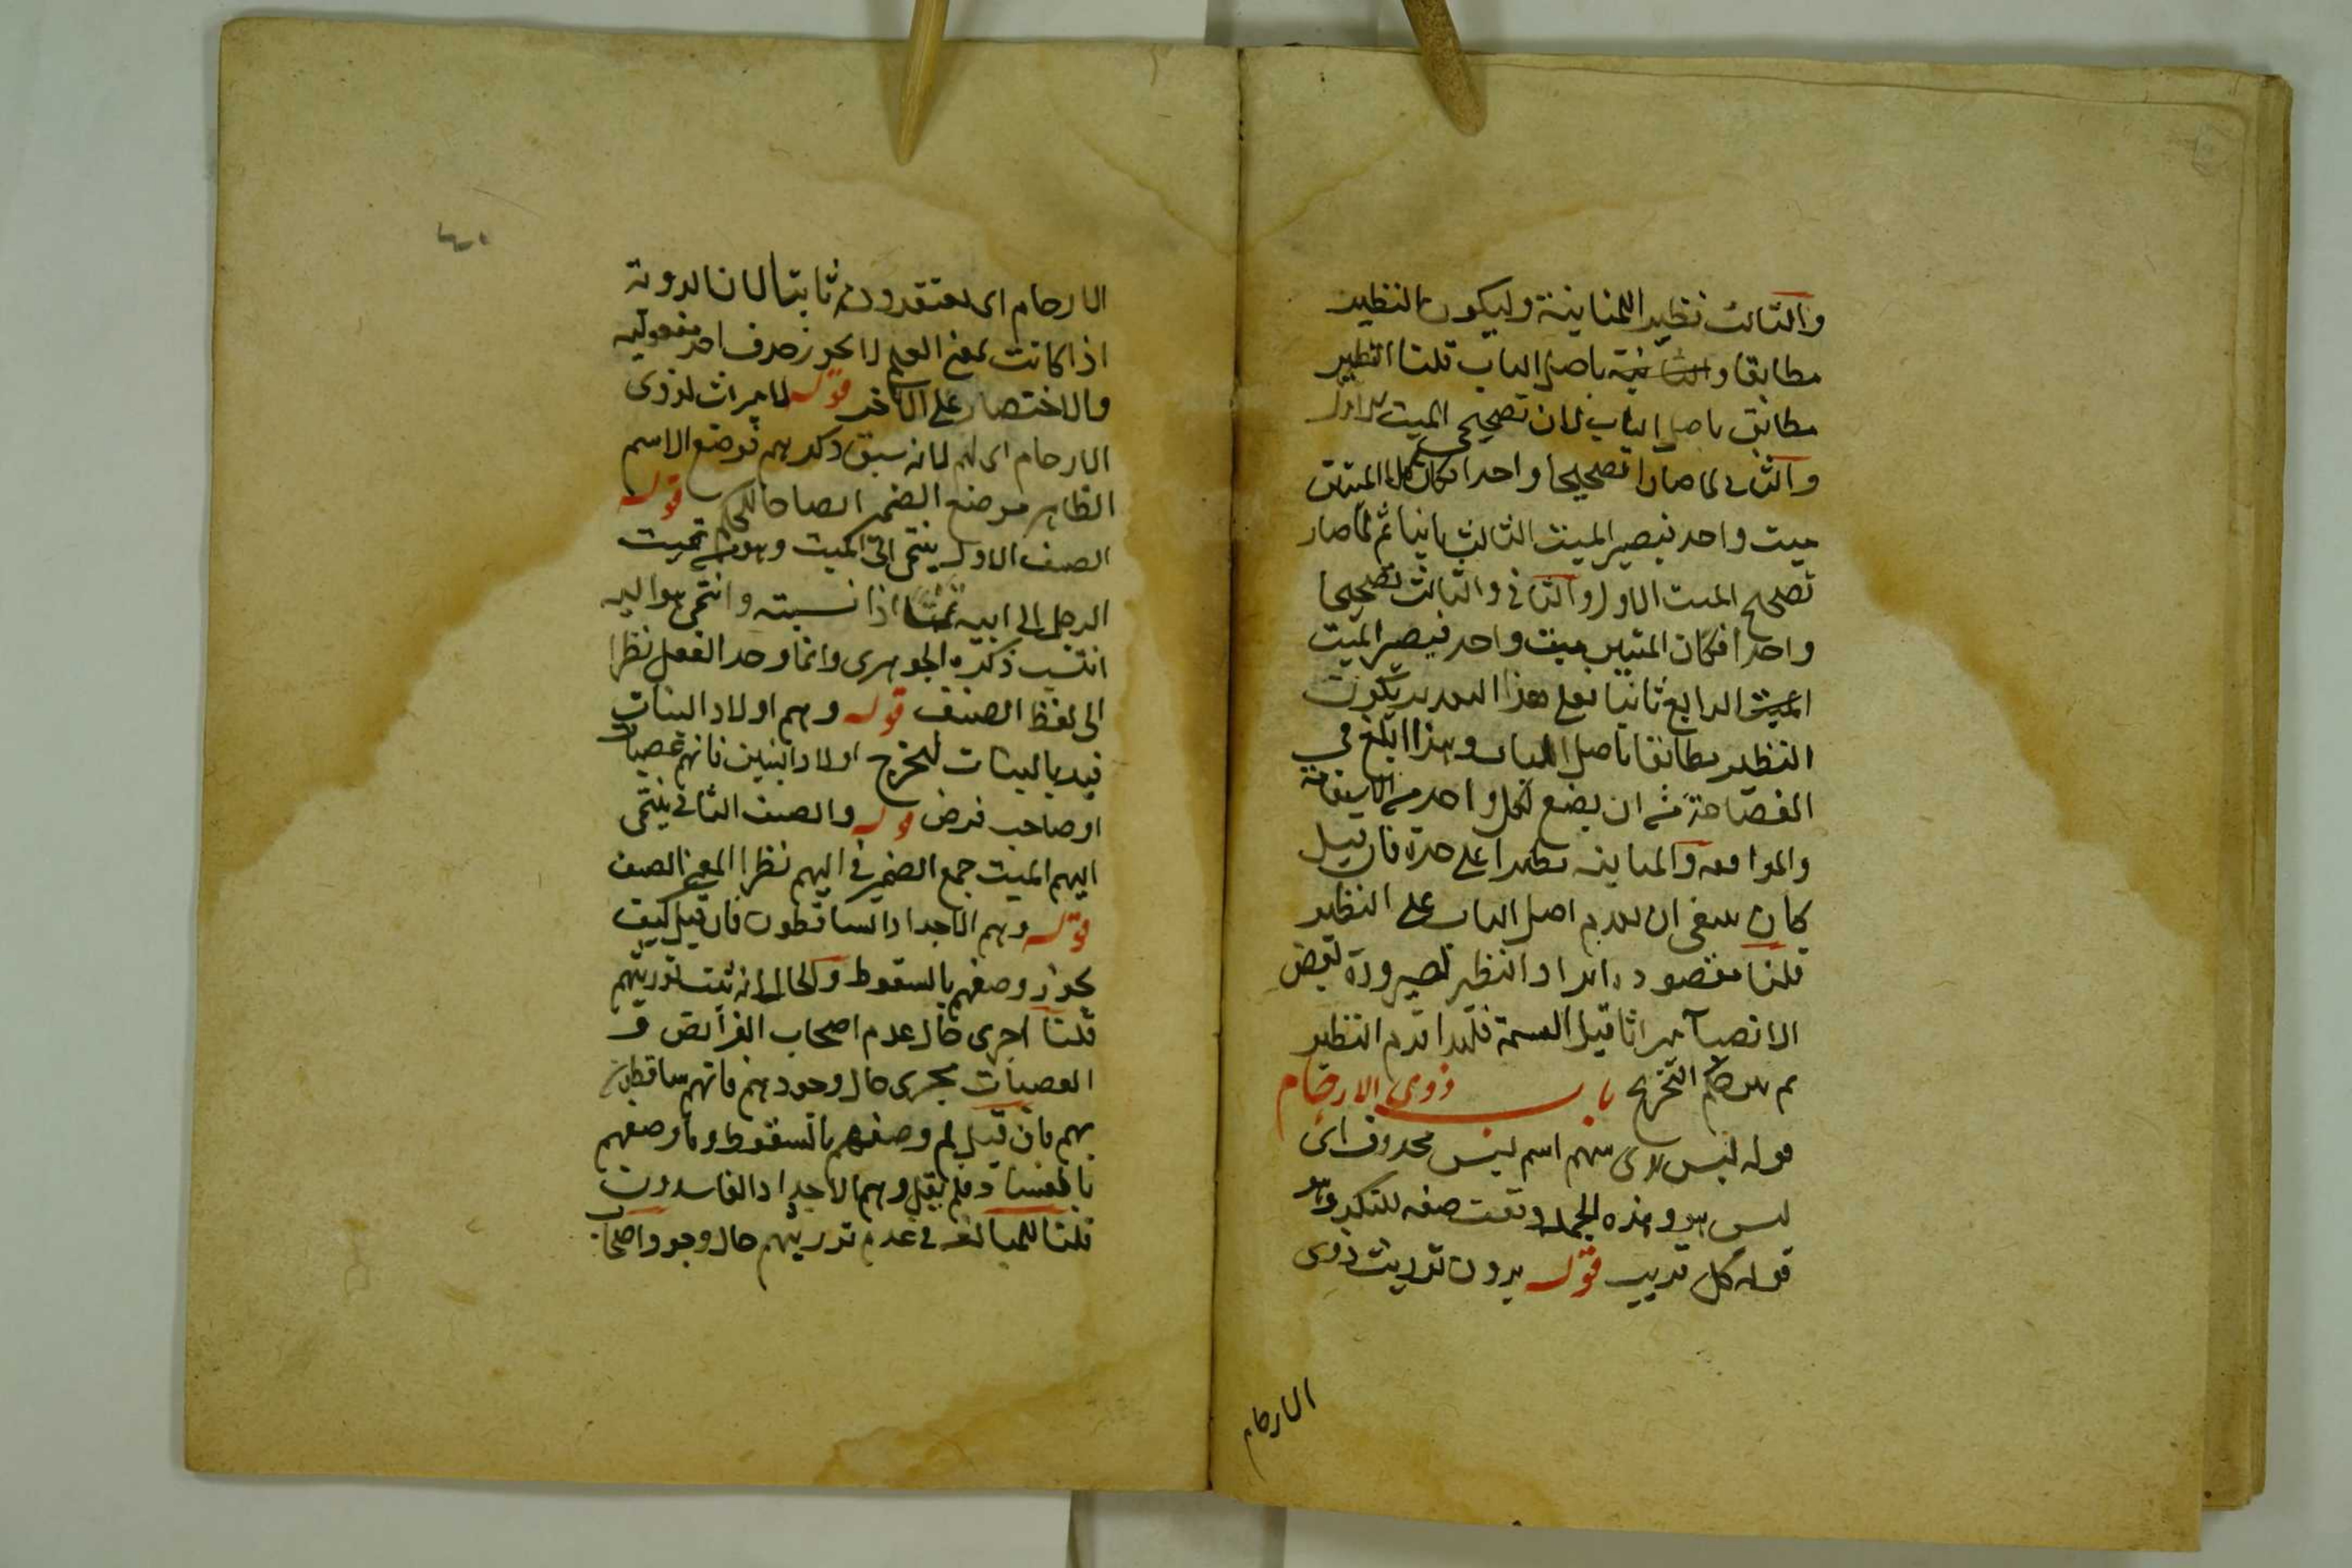 والثالث نظير المباينة وليكون النظير
مطابقا والثانية باصل الباب قلنا النظير
مطابق باصل الباب لان تصحيح الميت الاول
والثانى لما صارا تصحيحا واحدا فكان الميتين
ميت واحد فيصير الميت الثالث ثانيا ثم لما صار
تصحيح الميت الاول والثانى والثالث تصحيحا
واحدا فكان الميتين ميت واحد فيصير الميت
الميت الرابع ثانيا فعلى هذا التقدير يكون
النظير مطابقا باصل الباب وهذا ابلغ فى
الفصاحة من ان يضع لكل واحد من الاستقامة
والموافقة والمباينة نظيرا على حدة فان قيل
كان ينبغى ان يقدم اصل الباب على النظير
قلنا مقصوده ايراد النظير لصيرورة بعض
الانصباء ميراثا قبل القسمة فلهذا قدم النظير
ثم بين حكم التخريج باب ذوى الارحام
قوله ليس بذى سهم اسم ليس محذوف اى
ليس هو وهذه الجملة وقعت صفة للنكرة وهو
قوله كل قريب قوله يرون توريث ذوى
الارحام
الارحام اى يعتقدون ثابتا لان الروية
اذا كانت بمعنى العلم لا يجوز حذف احد مفعوليه
والاختصار على الاخر قوله لا ميراث لذوى
الارحام اى لهم لانه سبق ذكرهم فوضع الاسم
الظاهر موضع الضمير ايضاحا للحكم قوله
الصنف الاول ينتمى الى الميت وهو من نميت
الرجل الى ابيه نميا اذا نسبته وانتمى هو اليه
انتسب ذكره الجوهرى وانما وحد الفعل نظرا
الى لفظ الصنف قوله وهم اولاد البنات
قيد بالبنات ليخرج اولاد البنين فانهم عصبات
او صاحب فرض قوله والصنف الثانى ينتمى
اليهم الميت جمع الضمير فى اليهم نظرا الى معنى الصنف
قوله وهم الاجداد الساقطون فان قيل كيف
يجوز وصفهم بالسقوط والحال انه ثبت توريثهم
قلنا اجرى حال عدم اصحاب الفرائض و
العصبات مجرى حال وجودهم فانهم ساقطون
بهم فان قيل لم وصفهم بالسقوط وما وصفهم
بالفساد فلم يقل وهم الاجداد الفاسدون
قلنا للمبالغة فى عدم توريثهم حال وجود اصحاب